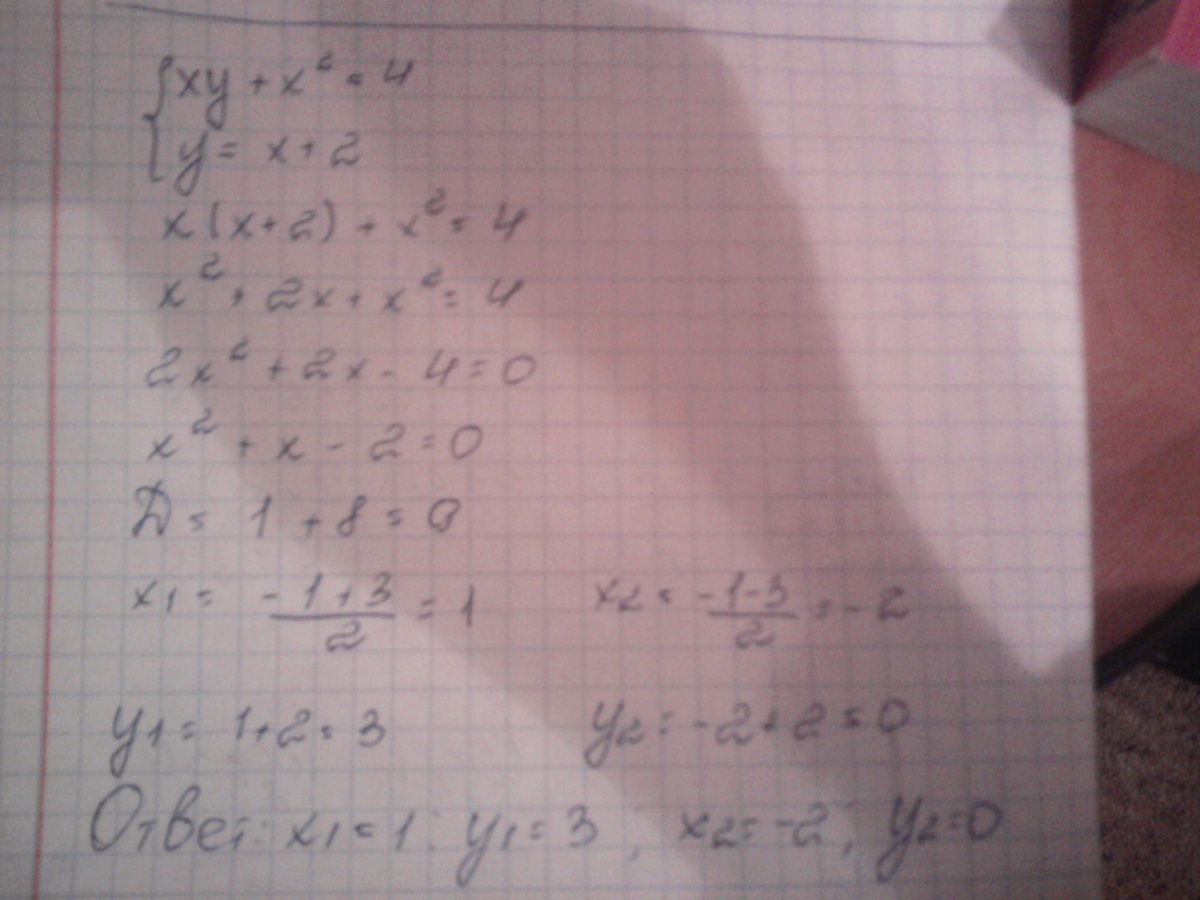 {xy + x² = 4
y = x + 2
x(x+2) + x² = 4
x² + 2x + x² = 4
2x² + 2x - 4 = 0
x² + x - 2 = 0
D = 1 + 8 = 9
x1 = (-1+3)/2 = 1 x2 = (-1-3)/2 = -2
y1 = 1+2 = 3 y2 = -2+2 = 0
Ответ: x1 = 1; y1 = 3; x2 = -2; y2 = 0